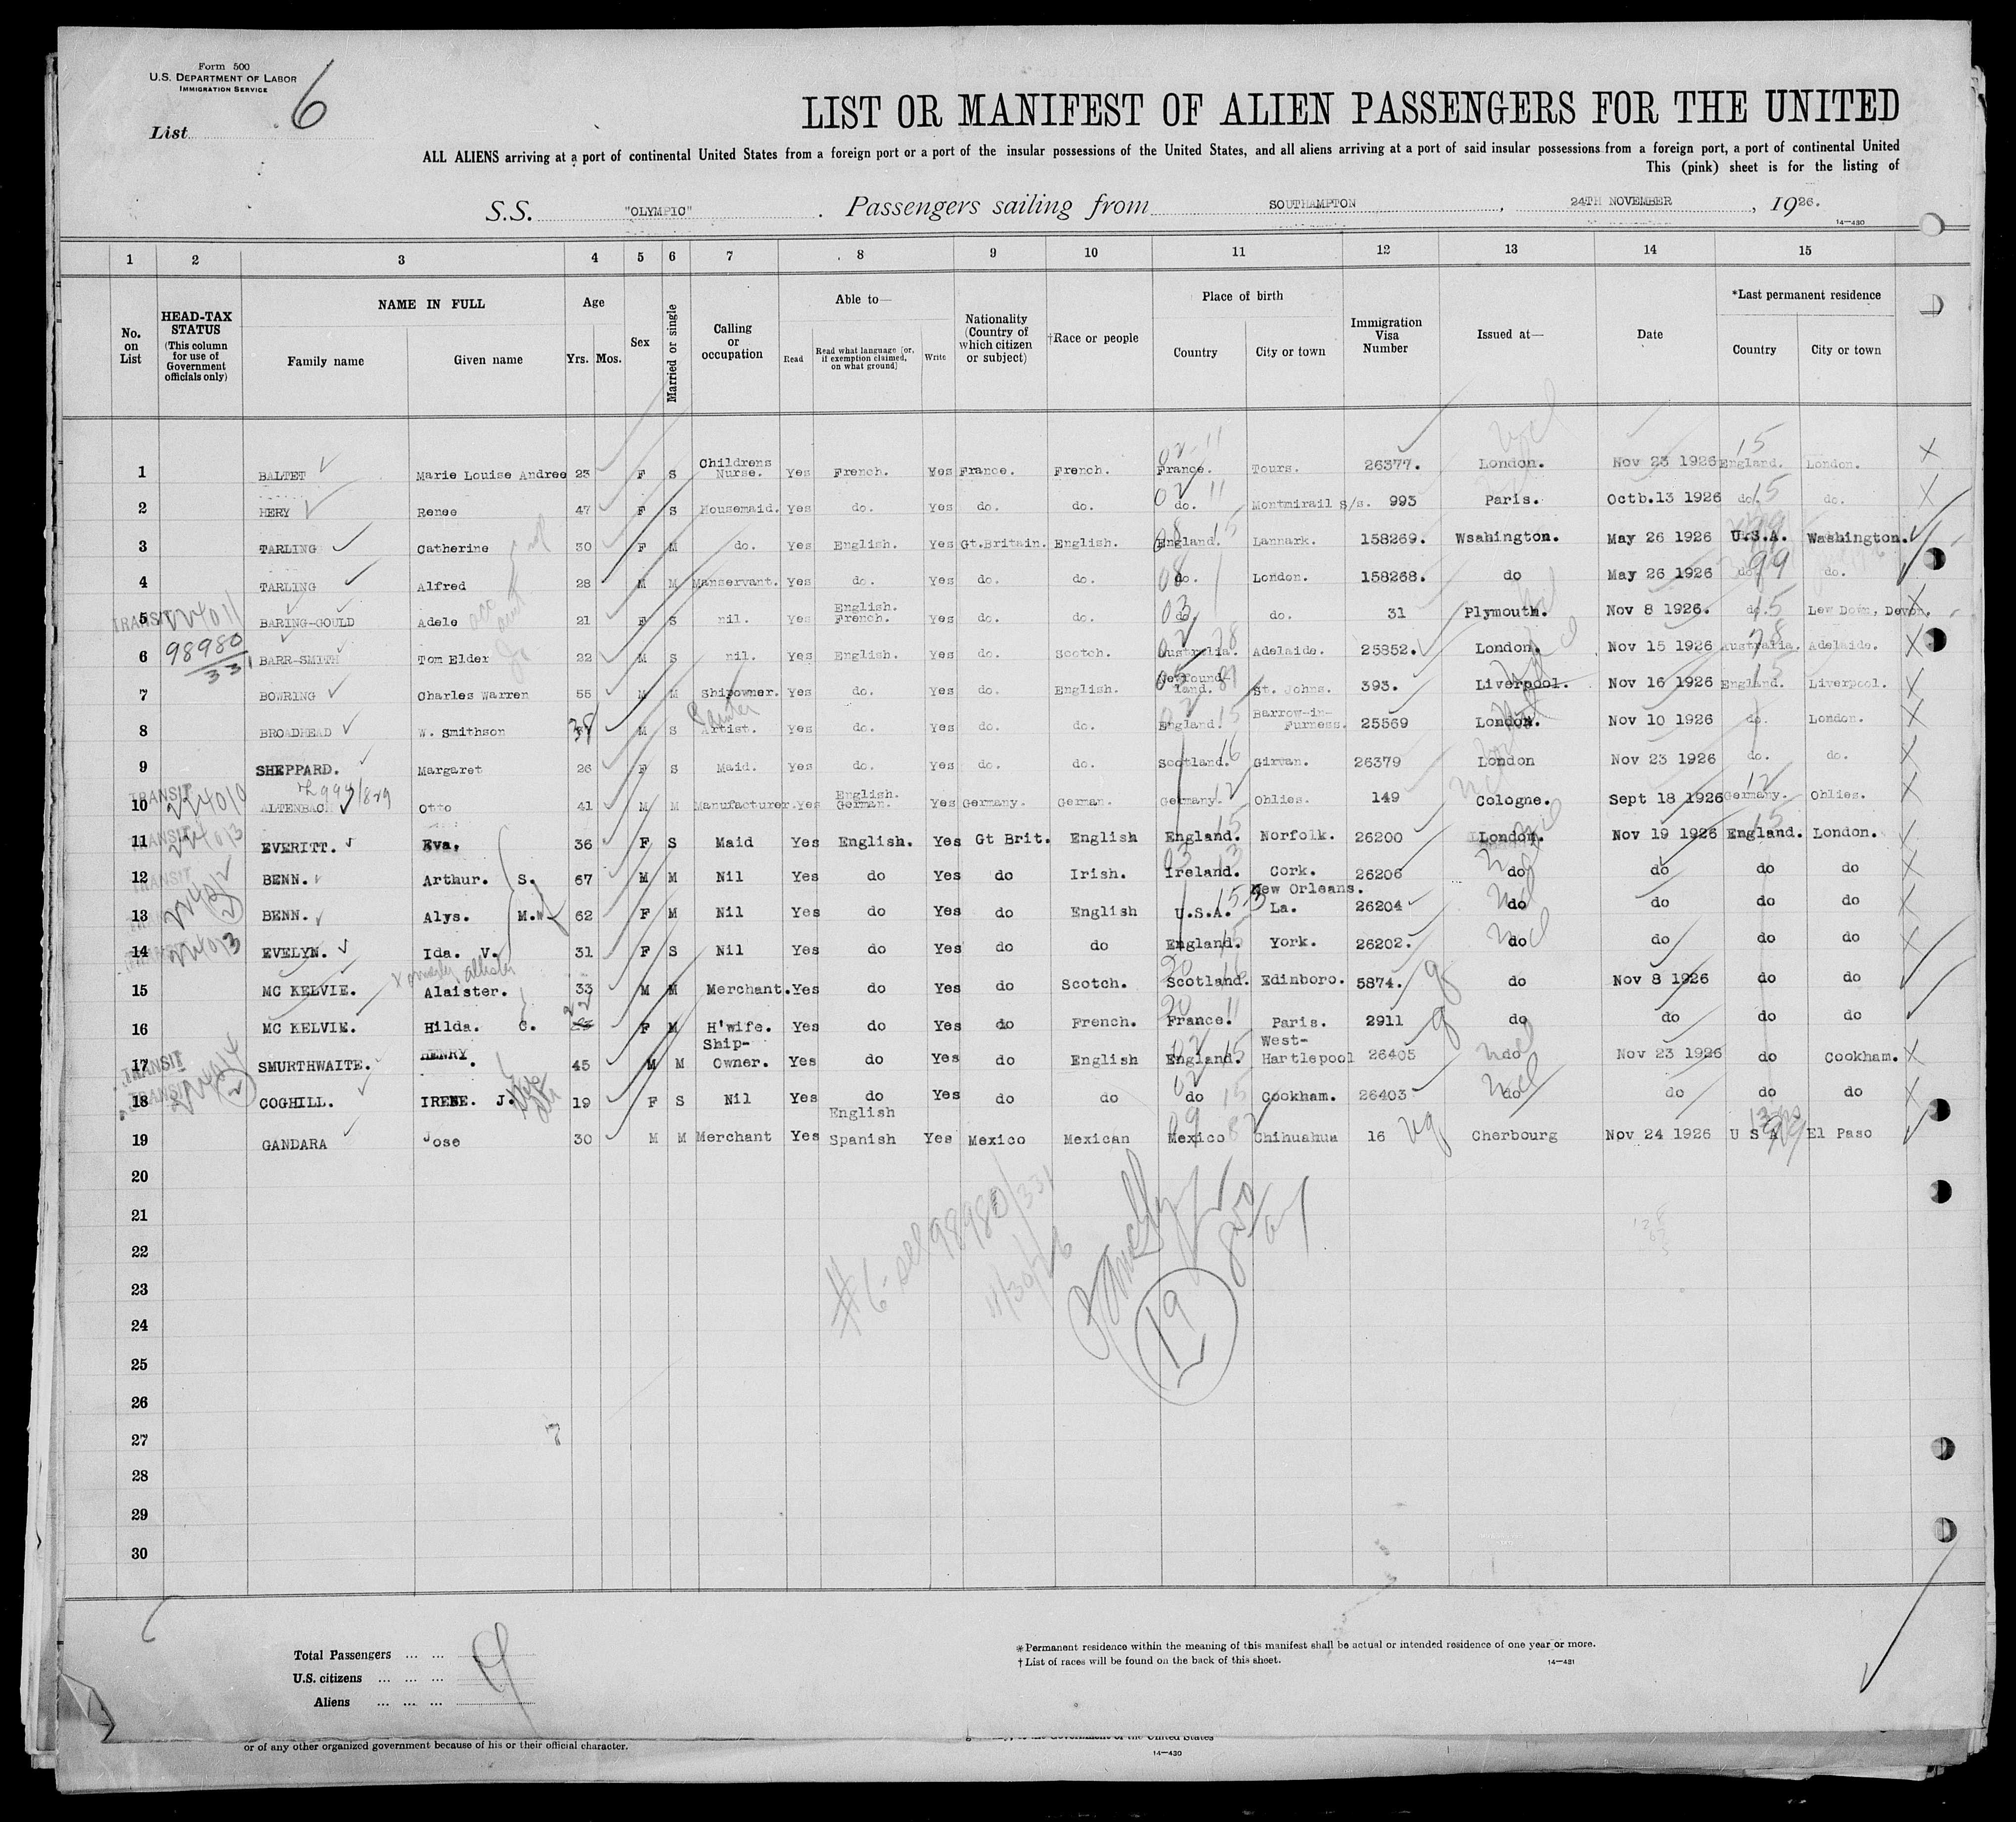 Form 500
U.S. DEPARTMENT OF LABOR
IMMIGRATION SERVICE
List 6
LIST OR MANIFEST OF ALIEN PASSENGERS FOR THE UNITED
ALL ALIENS arriving at a port of continental United States from a foreign port or a port of the insular possessions of the United States, and all aliens arriving at a port of said insular possessions from a foreign port, a port of continental United
This (pink) sheet is for the listing of
S.S. "OLYMPIC". Passengers sailing from SOUTHAMPTON, 24TH NOVEMBER, 1926.
14—430
1 2 3 4 5 6 7 8 9 10 11 12 13 14 15
No. on List
HEAD-TAX STATUS (This column for use of Government officials only)
NAME IN FULL
Family name
Given name
Age
Yrs. Mos.
Sex
Married or single
Calling or occupation
Able to—
Read
Read what language [or, if exemption claimed, on what ground]
Write
Nationality (Country of which citizen or subject)
†Race or people
Place of birth
Country
City or town
Immigration Visa Number
Issued at—
Date
*Last permanent residence
Country
City or town
1 BALTET Marie Louise Andree 23 F S Childrens Nurse. Yes French. Yes France. French. France. Tours. 26377. London. Nov 23 1926 England. London.
2 HERY Renee 47 F S Housemaid. Yes do. Yes do. do. do. Montmirail S/s. 993 Paris. Octb.13 1926 do. do.
3 TARLING Catherine 30 F M do. Yes English. Yes Gt.Britain. English. England. Lannark. 158269. Wsahington. May 26 1926 U.S.A. Washington.
4 TARLING Alfred 28 M M Manservant. Yes do. Yes do. do. do. London. 158268. do May 26 1926 do. do.
5 TRANSIT 224011 BARING-GOULD Adele 21 F S nil. Yes English. French. Yes do. do. do. do. 31 Plymouth. Nov 8 1926. do. Lew Down, Devon.
6 98980/331 BARR-SMITH Tom Elder 22 M S nil. Yes English. Yes do. Scotch. Australia. Adelaide. 25852. London. Nov 15 1926 Australia. Adelaide.
7 BOWRING Charles Warren 55 M M Shipowner. Yes do. Yes do. English. Newfoundland. St. Johns. 393. Liverpool. Nov 16 1926 England. Liverpool.
8 BROADHEAD W. Smithson 38 M S Painter Artist. Yes do. Yes do. do. England. Barrow-in-Furness. 25569 London. Nov 10 1926 do. London.
9 SHEPPARD. Margaret 26 F S Maid. Yes do. Yes do. do. Scotland. Girvan. 26379 London Nov 23 1926 do. do.
10 TRANSIT 224010 ALTENBACH Otto 41 M M Manufacturer. Yes English. German. Yes Germany. German. Germany. Ohlies. 149 Cologne. Sept 18 1926 Germany. Ohlies.
11 TRANSIT 224013 EVERITT. Eva. 36 F S Maid Yes English. Yes Gt Brit. English England. Norfolk. 26200 London. Nov 19 1926 England. London.
12 TRANSIT BENN. Arthur. S. 67 M M Nil Yes do Yes do Irish. Ireland. Cork. 26206 do do do do
13 BENN. Alys. M. 62 F M Nil Yes do Yes do English U.S.A. New Orleans. La. 26204 do do do do
14 224013 EVELYN. Ida. V. 31 F S Nil Yes do Yes do do England. York. 26202. do do do do
15 MC KELVIE. Alaister. 33 M M Merchant. Yes do Yes do Scotch. Scotland. Edinboro. 5874. do Nov 8 1926 do do
16 MC KELVIE. Hilda. C. F M H'wife. Yes do Yes do French. France. Paris. 2911 do do do do
17 TRANSIT SMURTHWAITE. HENRY. 45 M M Ship-Owner. Yes do Yes do English England. West-Hartlepool 26405 do Nov 23 1926 do Cookham.
18 TRANSIT COGHILL. IRENE. J. 19 F S Nil Yes do Yes do do do Cookham. 26403 do do do do
19 GANDARA Jose 30 M M Merchant Yes English Spanish Yes Mexico Mexican Mexico Chihuahua 16 Cherbourg Nov 24 1926 U S A El Paso
20
21
22
23
24
25
26
27
28
29
30
#6 98980/331
11/30/26
19
Total Passengers
U.S. citizens
Aliens
*Permanent residence within the meaning of this manifest shall be actual or intended residence of one year or more.
†List of races will be found on the back of this sheet.
14—431
or of any other organized government because of his or their official character.
14—430